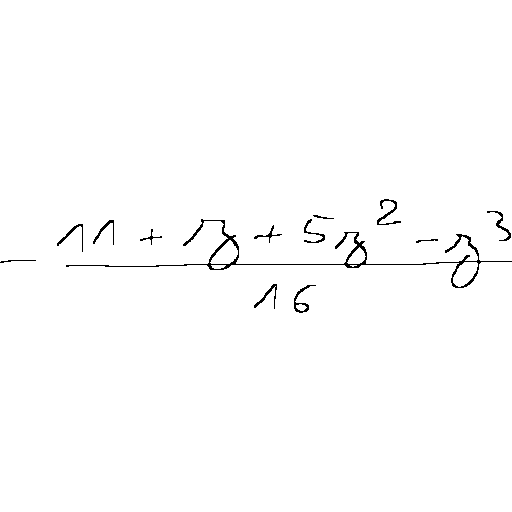 - \frac{11 + z + 5z^2 - z^3}{16}